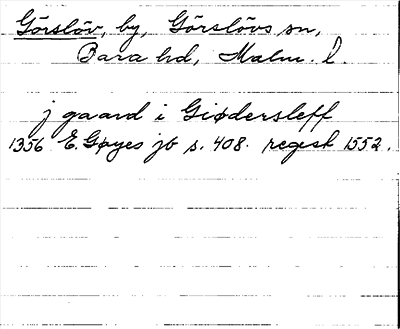 Görslöv, by, Görslövs sn,
Bara hd, Malm. l.
j gaard i Giødersleff
1356 E. Gøyes jb s. 408. regest 1552.